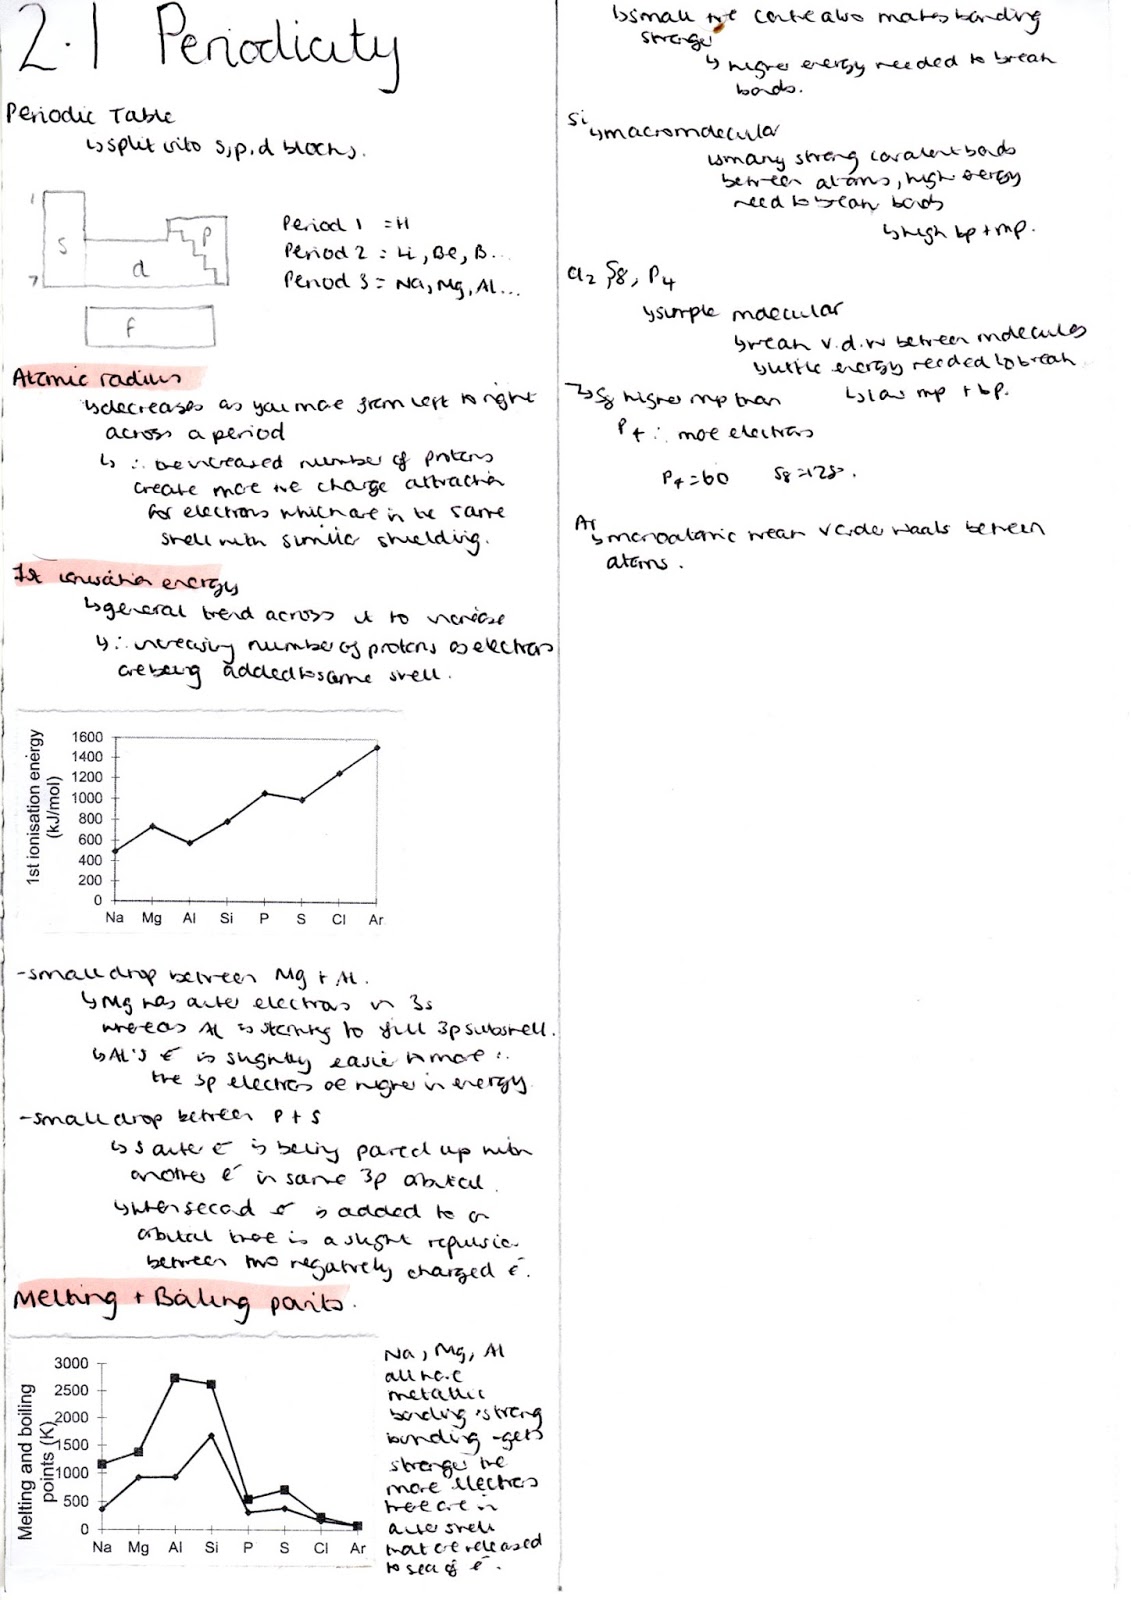 2.1 Periodicity
Periodic Table
↳ split into s, p, d blocks.
1
s
p
d
7
f
Period 1 = H
Period 2 = Li, Be, B...
Period 3 = Na, Mg, Al...
Atomic radius
↳ decreases as you move from left to right
across a period
↳ ∴ the increased number of protons
create more +ve charge attraction
for electrons which are in the same
shell with similar shielding.
1st ionisation energy
↳ general trend across is to increase
↳ ∴ increasing number of protons as electrons
are being added to same shell.
1st ionisation energy
(kJ/mol)
1600
1400
1200
1000
800
600
400
200
0
Na Mg Al Si P S Cl Ar
- small drop between Mg + Al.
↳ Mg has outer electrons in 3s
whereas Al is starting to fill 3p subshell.
↳ Al's e⁻ is slightly easier to move ∴
the 3p electrons are higher in energy
- small drop between P + S
↳ S outer e⁻ is being paired up with
another e⁻ in same 3p orbital.
↳ when second e⁻ is added to an
orbital there is a slight repulsion
between two negatively charged e⁻.
Melting + Boiling points.
Melting and boiling
points (K)
3000
2500
2000
1500
1000
500
0
Na Mg Al Si P S Cl Ar
Na, Mg, Al
all have
metallic
bonding, strong
bonding - gets
stronger the
more electrons
there are in
outer shell
that are released
to sea of e⁻.
↳ small +ve centre also makes bonding
stronger
↳ higher energy needed to break
bonds.
Si
↳ macromolecular
↳ many strong covalent bonds
between atoms, high energy
need to break bonds
↳ high bp + mp.
Cl2 S8, P4
↳ simple molecular
↳ weak v.d.w between molecules
↳ little energy needed to break
↳ low mp + bp.
↳ S8 higher mp than
P4 ∴ more electrons
P4 = 60 S8 = 128.
Ar
↳ monoatomic weak van der waals between
atoms.